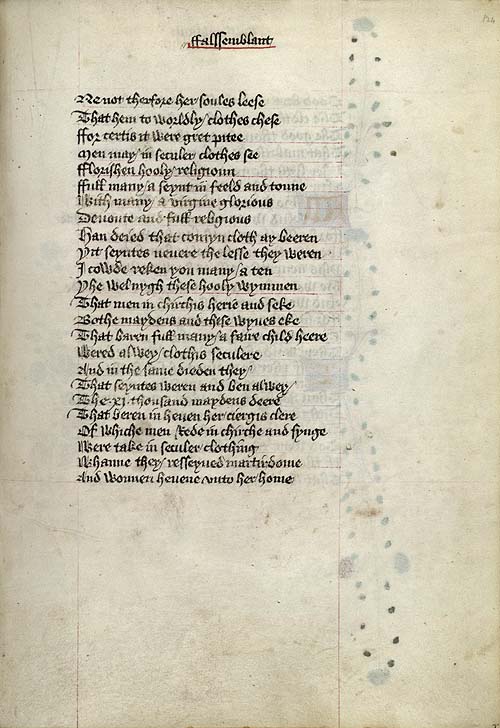 124
ffalssemblant
Ne not therfore her soules leese
That hem to worldly clothes chese
ffor certis it were gret pitee
Men may in seculer clothes see
fflorishen hooly religioun
ffull many a seynt in feeld and toune
With many a virgine glorious
Devoute and full religious
Han deied that comyn cloth ay beeren
Yit seyntes nevere the lesse they weren
I cowde reken you many a ten
Yhe wel nygh these hooly wymmen
That men in chirchis herie and seke
Bothe maydens and these wyves eke
That baren full many a faire child heere
Wered alwey clothis seculere
And in the same dieden they
That seyntes weren and ben alwey
The .xi. thousand maydens deere
That beren in heven her ciergis clere
Of whiche men rede in chirche and synge
Were take in seculer clothing
Whanne they resseyued martirdome
And wonnen hevene vnto her home